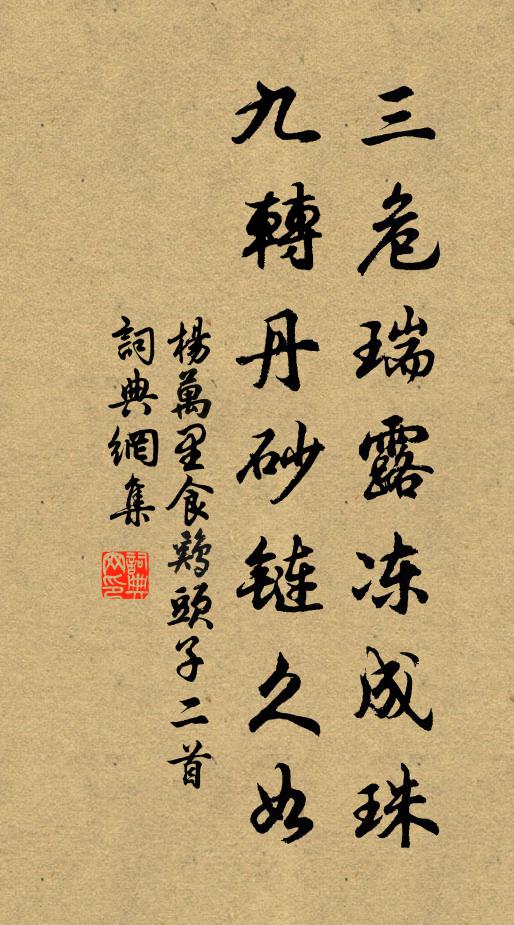 三危瑞露冻成珠
九轉丹砂鏈久如
楊萬里食鷄頭子二首
詞典網集
詞典网印